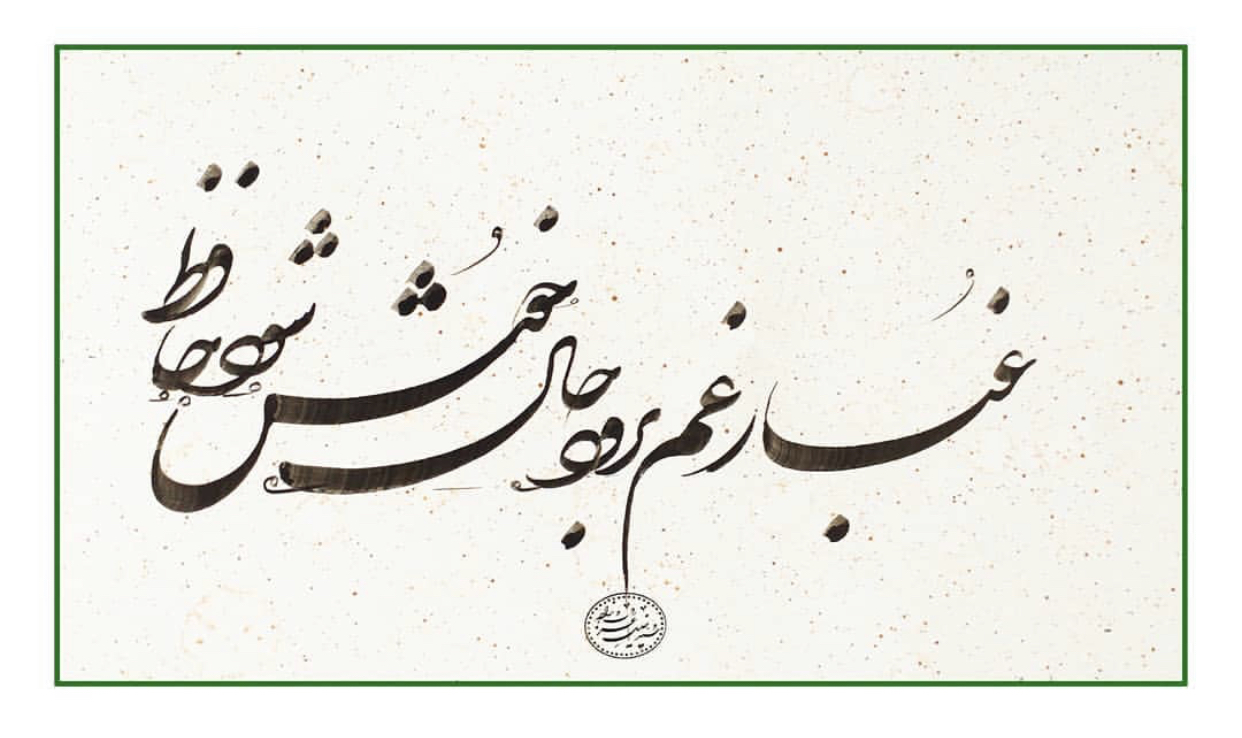 غبار غم برود حال خوش شود حافظ